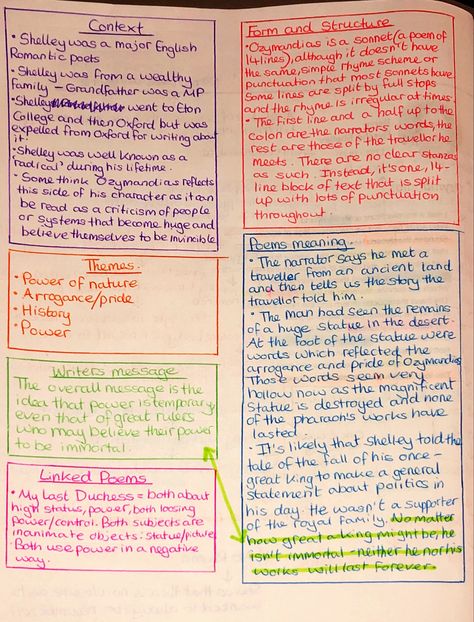 Context
• Shelley was a major English
Romantic poets
• Shelley was from a wealthy
family - Grandfather was a MP
• Shelley went to Eton
College and then Oxford but was
expelled from Oxford for writing about
it.
• Shelley was well known as a
'radical' during his lifetime.
• Some think Ozymandias reflects
this side of his character as it can
be read as a criticism of people
or systems that become huge and
believe themselves to be invincible
Themes
• Power of nature
• Arrogance/pride
• History
• Power
Writers message
The overall message is the
idea that power is temporary
even that of great rulers
who may believe their power
to be immortal.
Linked Poems
• My Last Duchess = both about
high status, power, both loosing
power/control. Both subjects are
inanimate objects: statue/picture
Both use power in a negative
way.
Form and Structure
• Ozymandias is a sonnet (a poem of
14 lines), although it doesn't have
the same, simple rhyme scheme or
punctuation that most sonnets have
Some lines are split by full stops
and the rhyme is irregular at times.
• The first line and a half up to the
colon are the narrators words, the
rest are those of the traveller he
meets. There are no clear stanzas
as such. Instead, it's one, 14-
line block of text that is split
up with lots of punctuation
throughout.
Poems meaning.
• The narrator says he met a
traveller from an ancient land
and then tells us the story the
travellor told him.
• The man had seen the remains
of a huge statue in the desert.
At the foot of the statue were
words which reflected the
arrogance and pride of Ozymandias
Those words seem very
hollow now as the magnificent
statue is destroyed and none
of the pharaoh's works have
lasted.
• It's likely that Shelley told the
tale of the fall of his once-
great king to make a general
statement about politics in
his day. He wasn't a supporter
of the royal family. No matter
how great a king might be, he
isn't immortal - neither he nor his
works will last forever.